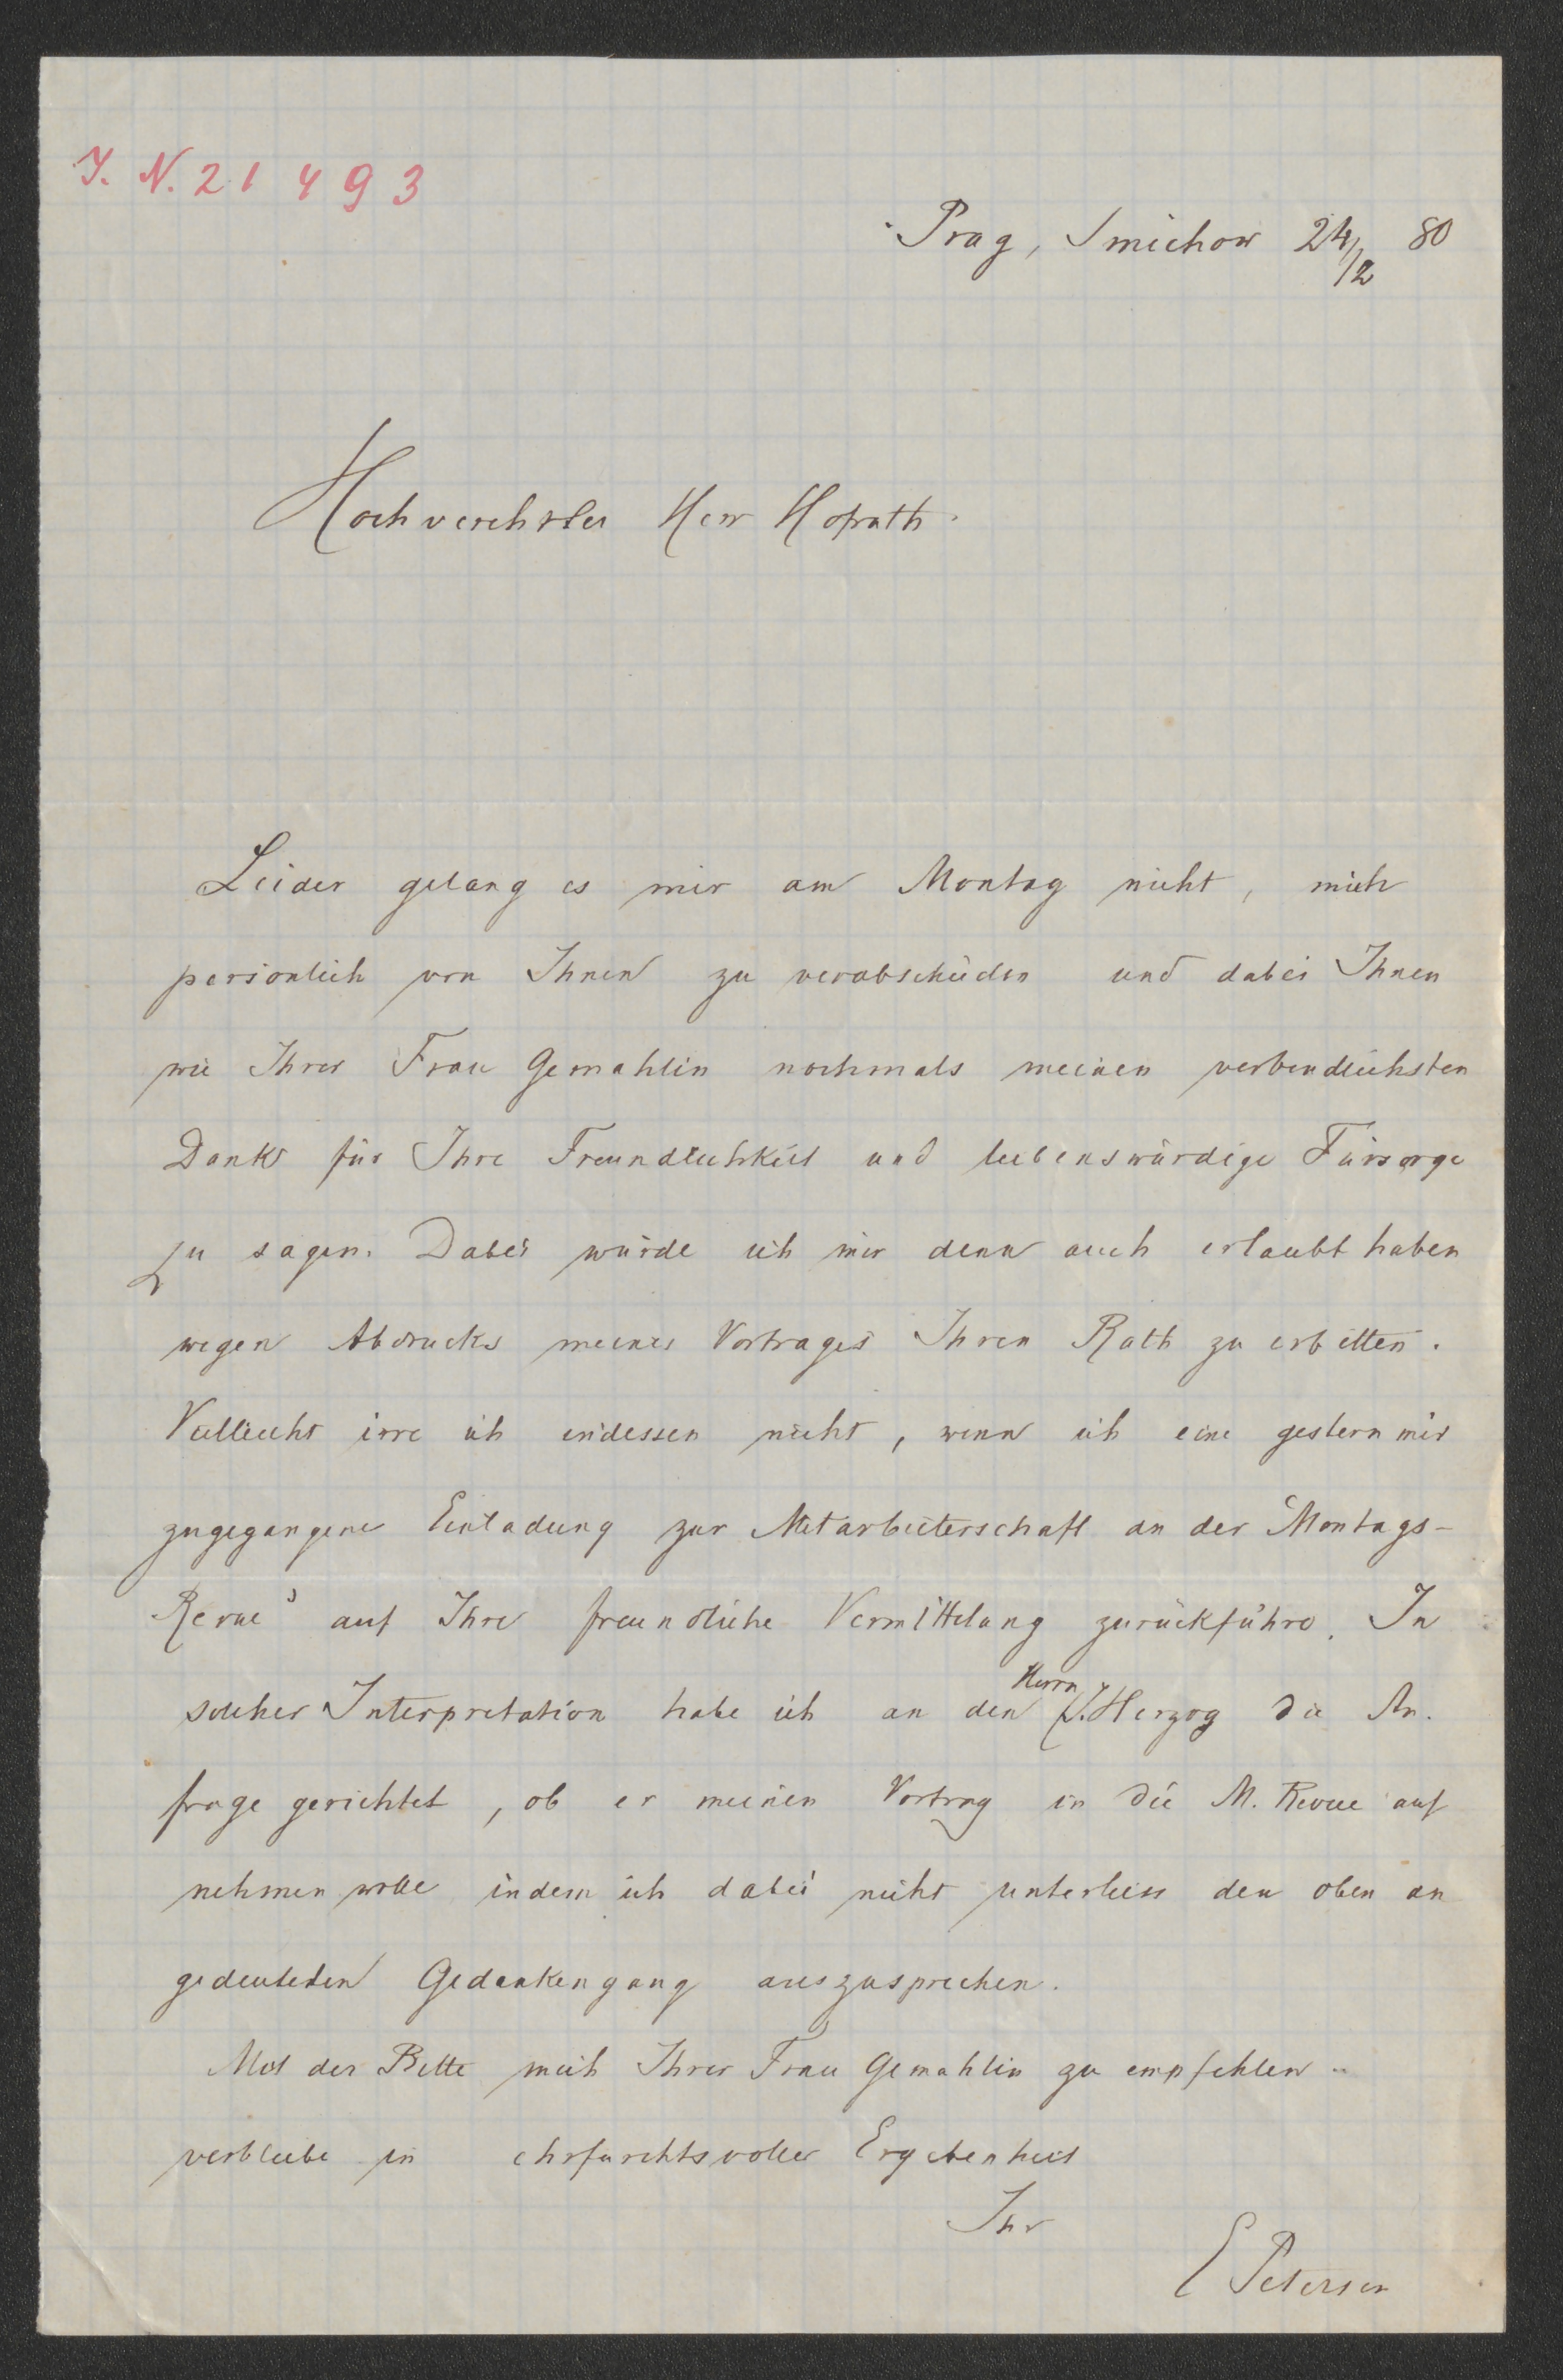 J. N. 21 493
Prag, Smichow 24/2 80
Hochverehrter Herr Hofrath.
Leider gelang es mir am Montag nicht, mich
persönlich von Ihnen zu verabschieden und dabei Ihnen
wie Ihrer Frau Gemahlin nochmals meinen verbindlichsten
Dank für Ihre Freundlichkeit und liebenswürdige Fürsorge
zu sagen. Dabei würde ich mir denn auch erlaubt haben
wegen Abdrucks meines Vortrages Ihren Rath zu erbitten.
Vielleicht irre ich indessen nicht, wenn ich eine gestern mir
zugegangene Einladung zur Mitarbeiterschaft an der Montags-
Revue auf Ihre freundliche Vermittelung zurückführe. In
solcher Interpretation habe ich an den Herrn J. Herzog die An-
frage gerichtet, ob er meinen Vortrag in die M. Revue auf
nehmen wolle indem ich dabei nicht unterliess den oben an
gedeuteten Gedankengang auszusprechen.
Mit der Bitte mich Ihrer Frau Gemahlin zu empfehlen
verbleibe in ehrfurchtsvoller Ergebenheit
Ihr
E Petersen